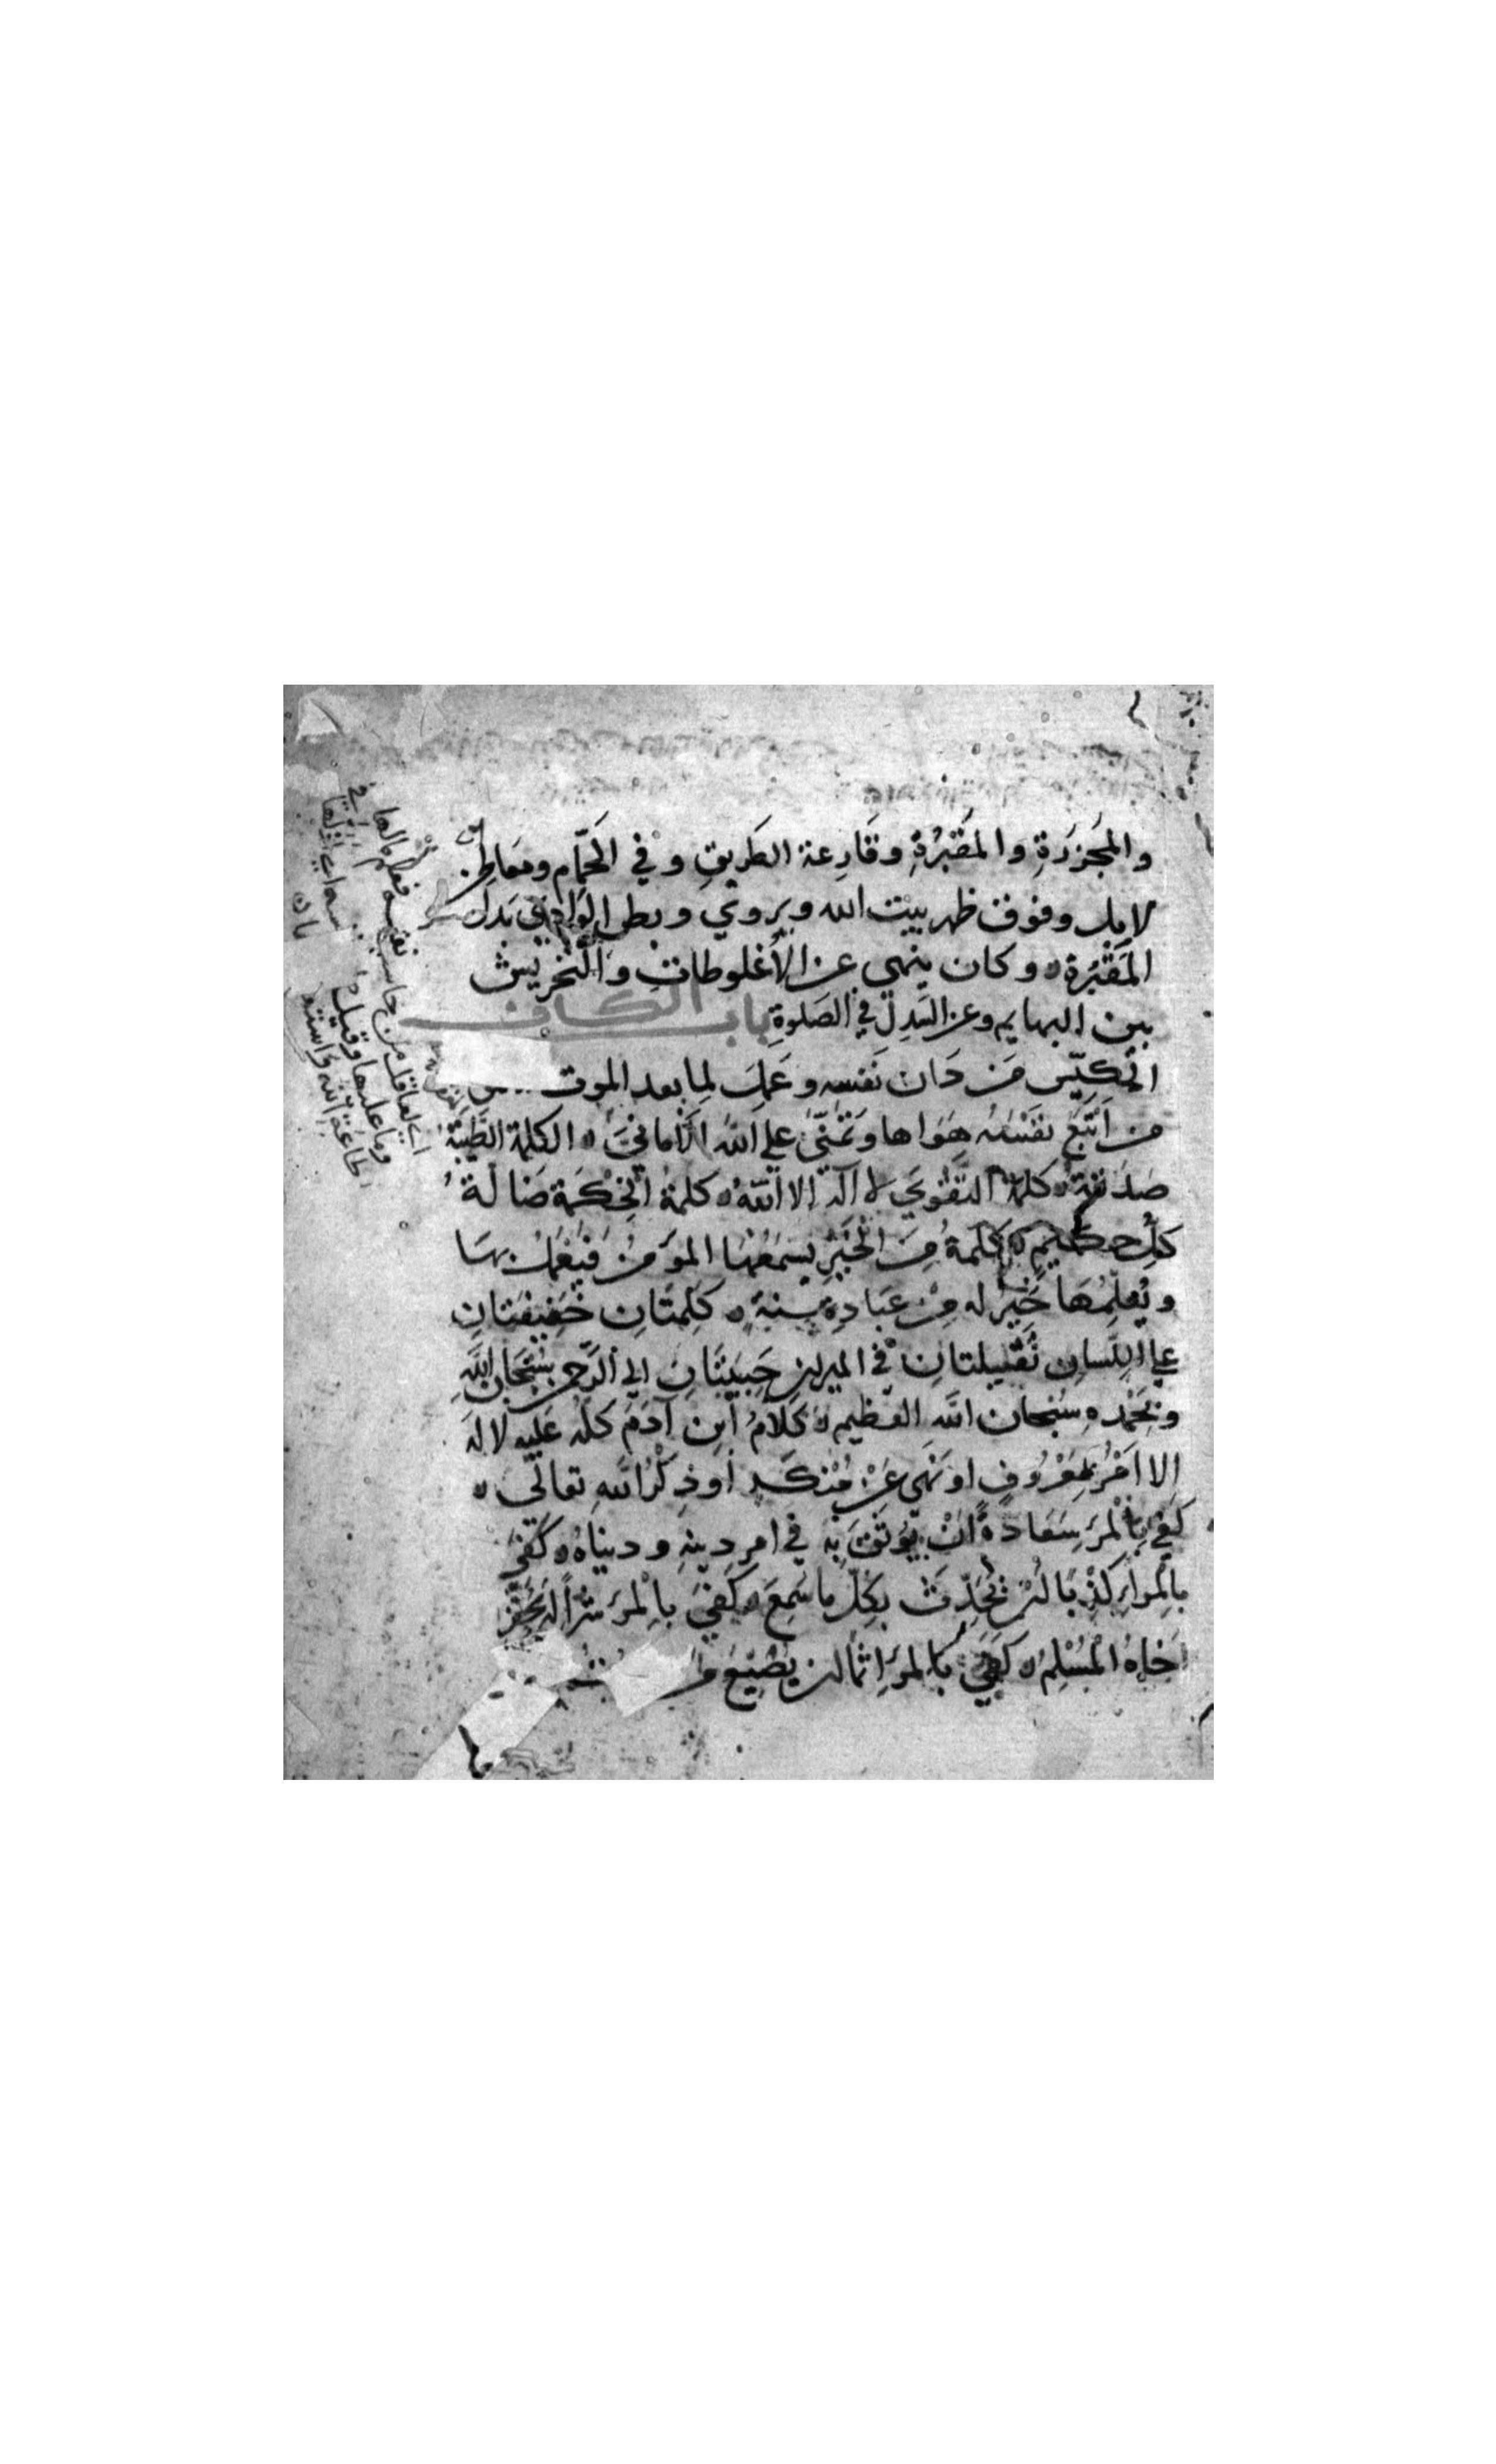 والمَجزَرَةِ والمَقْبُرَةِ وقَارِعة الطَريقِ وفي الحَمّامِ ومعَاطِن
لابل وفوق ظهر بيت الله ويروي وبطن الوادي بَدل
المَقْبُرَة وكان ينهى عن الأغلوطاتِ والتّحريش
بين البهايم وعن السَدلِ في الصَلوةِ باب الكاف
الكيّس من دَان نَفسه وعَمِلَ لِما بعد الموت
من اتْبَعَ نفسَه هَوَاها وتمنّى على الله الأماني الكلمة الطيّبة
صدَقة كلمة التَقْوي لا اله الا الله كلمة الحِكمَة ضَالة
كلِّ حكيم كلمَة مِنَ الخَيرِ يسمَعُهَا المؤمن فيَعْمل بهَا
ويُعلّمُهَا خَيرٌ له مِن عبَادةِ سنة كلمتَانِ خَفيفَتانِ
على اللسان ثقيلتانِ في الميزان حَبيبَتَانِ الى الرَّحمن سُبْحَان اللهِ
وبحَمْدِه سُبْحان الله العَظيم كلامُ ابن آدَمَ كلّه عَليه لا له
الا امْرٌ بمَعْرُوفٍ او نَهى عَنْ مُنْكَر أو ذِكْرُ اللهِ تعالى
كَفى بالمَرءِ سَعَادَةً انْ يُوثَقَ به في امرِ دينهِ ودنياهُ كَفى
بالمرءِ كذِبًا ان يُحَدِّثَ بكلّ ما سَمِعَ كَفى بالمرء شرًا ان يَحْقِرَ
اخاهُ المُسْلِم كَفى بالمرءِ اثمًا ان يُضيّعَ
اي العاقل من حاسب نفسه فعلم ما لها
وما عليها وقيل
طاعة الله واستد